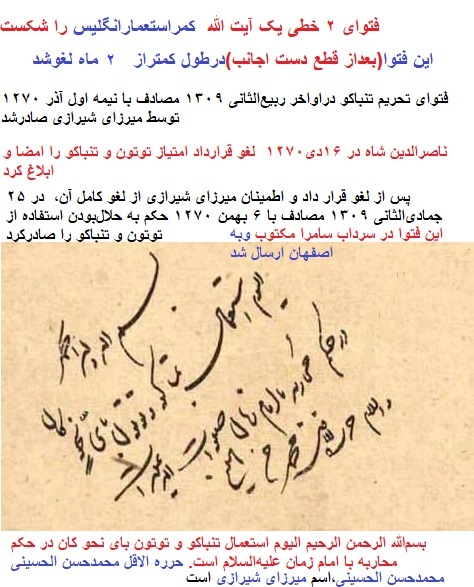 فتوای ۲ خطی یک آیت الله کمراستعمارانگلیس را شکست
این فتوا(بعداز قطع دست اجانب)درطول کمتراز ۲ ماه لغوشد
فتوای تحریم تنباکو دراواخر ربیع‌الثانی ۱۳۰۹ مصادف با نیمه اول آذر ۱۲۷۰
توسط میرزای شیرازی صادرشد
ناصرالدین شاه در ۱۶دی۱۲۷۰ لغو قرارداد امتیاز توتون و تنباکو را امضا و
ابلاغ کرد
پس از لغو قرار داد و اطمینان میرزای شیرازی از لغو کامل آن، در ۲۵
جمادی‌الثانی ۱۳۰۹ مصادف با ۶ بهمن ۱۲۷۰ حکم به حلال‌بودن استفاده از
توتون و تنباکو را صادرکرد این فتوا در سرداب سامرا مکتوب وبه
اصفهان ارسال شد
بسم الله الرحمن الرحیم
الیوم استعمال تنباکو و توتون بای نحو کان
در حکم محاربه با امام زمان علیه
حرره الاقل محمد حسن الحسینی
بسم‌الله الرحمن الرحیم الیوم استعمال تنباکو و توتون بای نحو کان در حکم
محاربه با امام زمان علیه‌السلام است. حرره الاقل محمدحسن الحسینی
محمدحسن الحسینی،اسم میرزای شیرازی است